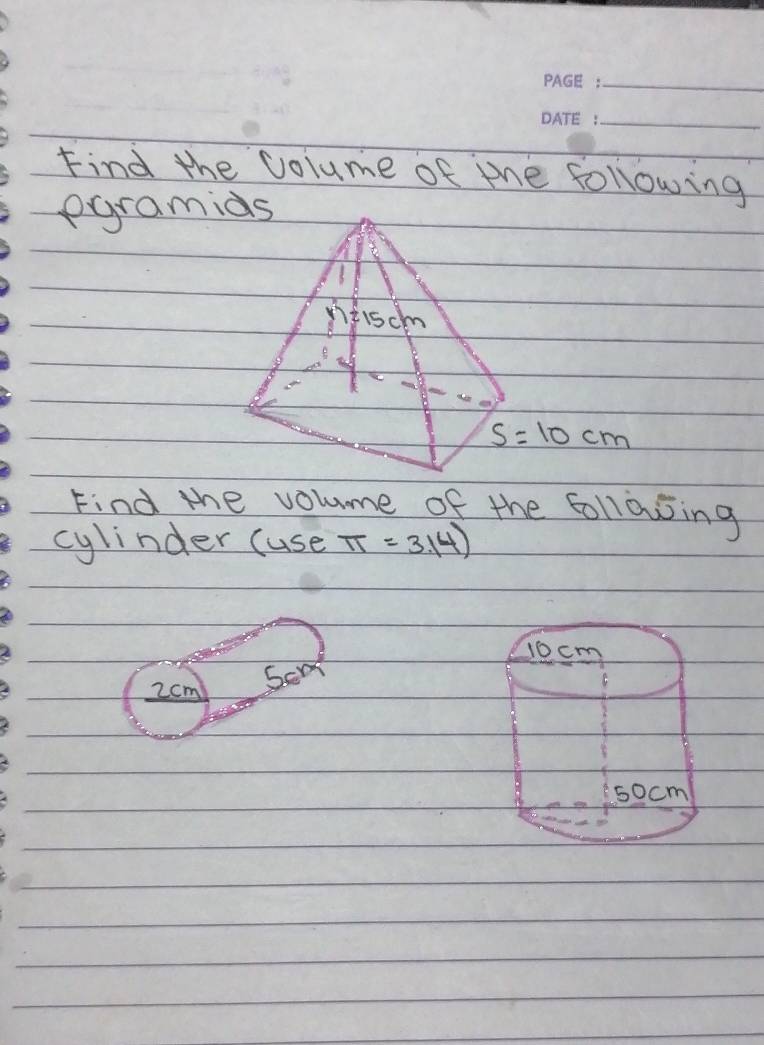 PAGE :
DATE :
Find the Volume of the following
pyramids
h=15cm
S=10 cm
Find the volume of the following
cylinder (use π = 3.14)
2cm
5cm
10cm
50cm